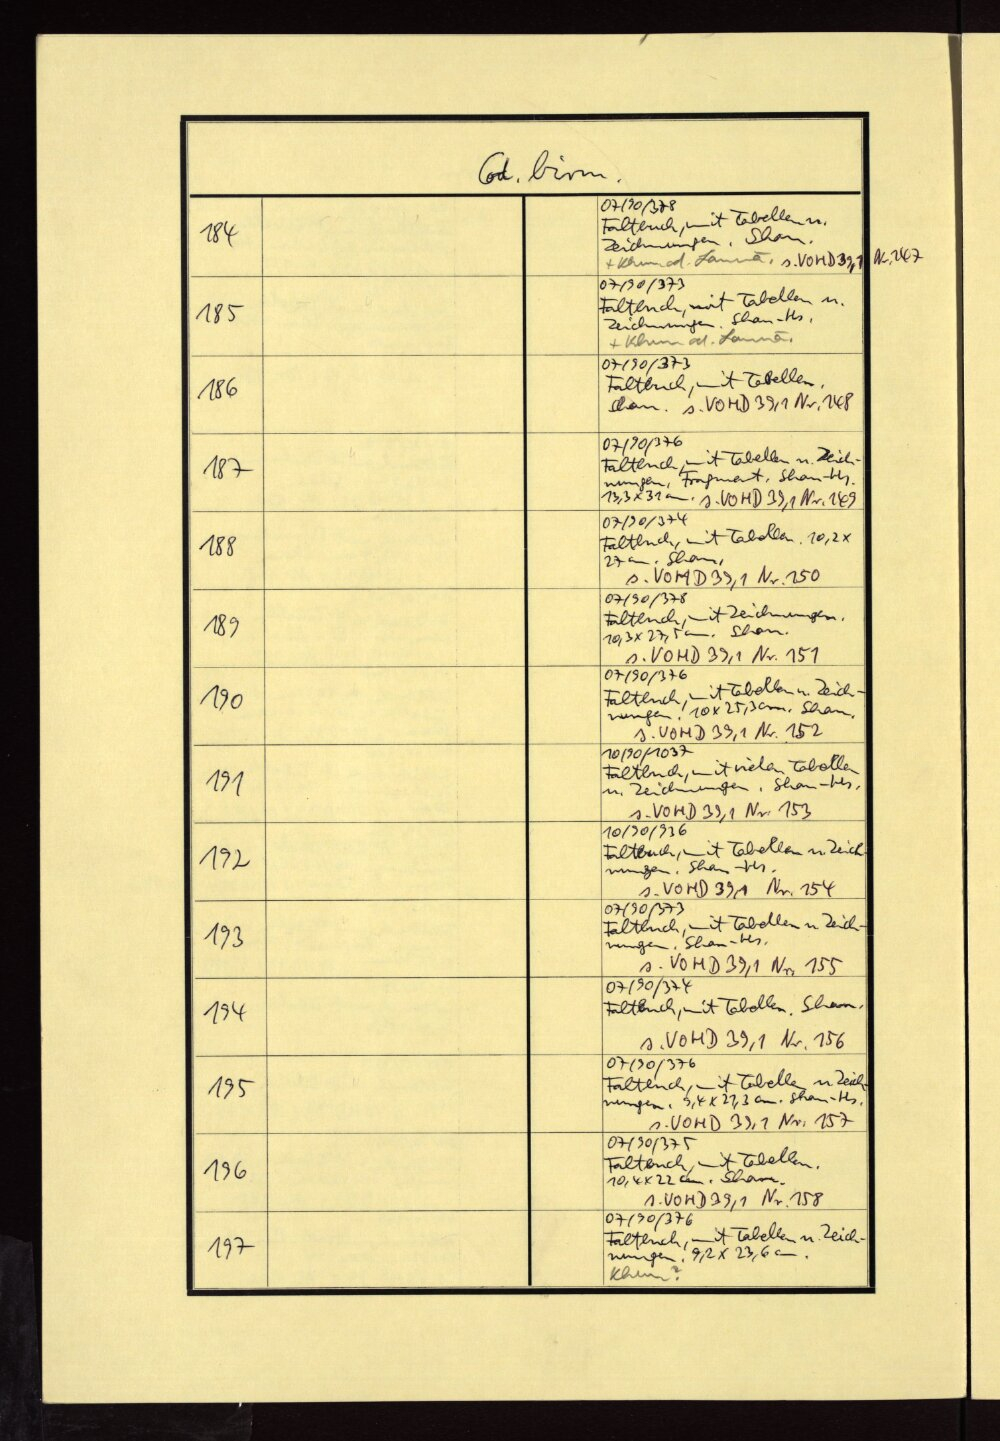 Cod. birm.
184
07/90/378
Faltbuch, mit Tabellen u.
Zeichnungen. Shan.
+ Khün od. Lanna. s. VOHD 39,1 Nr. 147
185
07/90/373
Faltbuch, mit Tabellen u.
Zeichnungen. Shan-Hs.
+ Khün od. Lanna.
186
07/90/373
Faltbuch, mit Tabellen.
Shan. s. VOHD 39,1 Nr. 148
187
07/90/376
Faltbuch, mit Tabellen u. Zeich-
nungen. Fragment. Shan-Hs.
13,3 x 31 cm. s. VOHD 39,1 Nr. 149
188
07/90/374
Faltbuch, mit Tabellen. 10,2 x
27 cm. Shan.
s. VOHD 39,1 Nr. 150
189
07/90/378
Faltbuch, mit Zeichnungen.
10,3 x 27,5 cm. Shan.
s. VOHD 39,1 Nr. 151
190
07/90/376
Faltbuch, mit Tabellen u. Zeich-
nungen. 10 x 25,3 cm. Shan.
s. VOHD 39,1 Nr. 152
191
10/90/1037
Faltbuch, mit vielen Tabellen
u. Zeichnungen. Shan-Hs.
s. VOHD 39,1 Nr. 153
192
10/90/936
Faltbuch, mit Tabellen u. Zeich-
nungen. Shan-Hs.
s. VOHD 39,1 Nr. 154
193
07/90/373
Faltbuch, mit Tabellen u. Zeich-
nungen. Shan-Hs.
s. VOHD 39,1 Nr. 155
194
07/90/374
Faltbuch, mit Tabellen. Shan.
s. VOHD 39,1 Nr. 156
195
07/90/376
Faltbuch, mit Tabellen u. Zeich-
nungen. 9,4 x 21,3 cm. Shan-Hs.
s. VOHD 39,1 Nr. 157
196
07/90/375
Faltbuch, mit Tabellen.
10,4 x 22 cm. Shan.
s. VOHD 39,1 Nr. 158
197
07/90/376
Faltbuch, mit Tabellen u. Zeich-
nungen. 9,2 x 23,6 cm.
Khün?